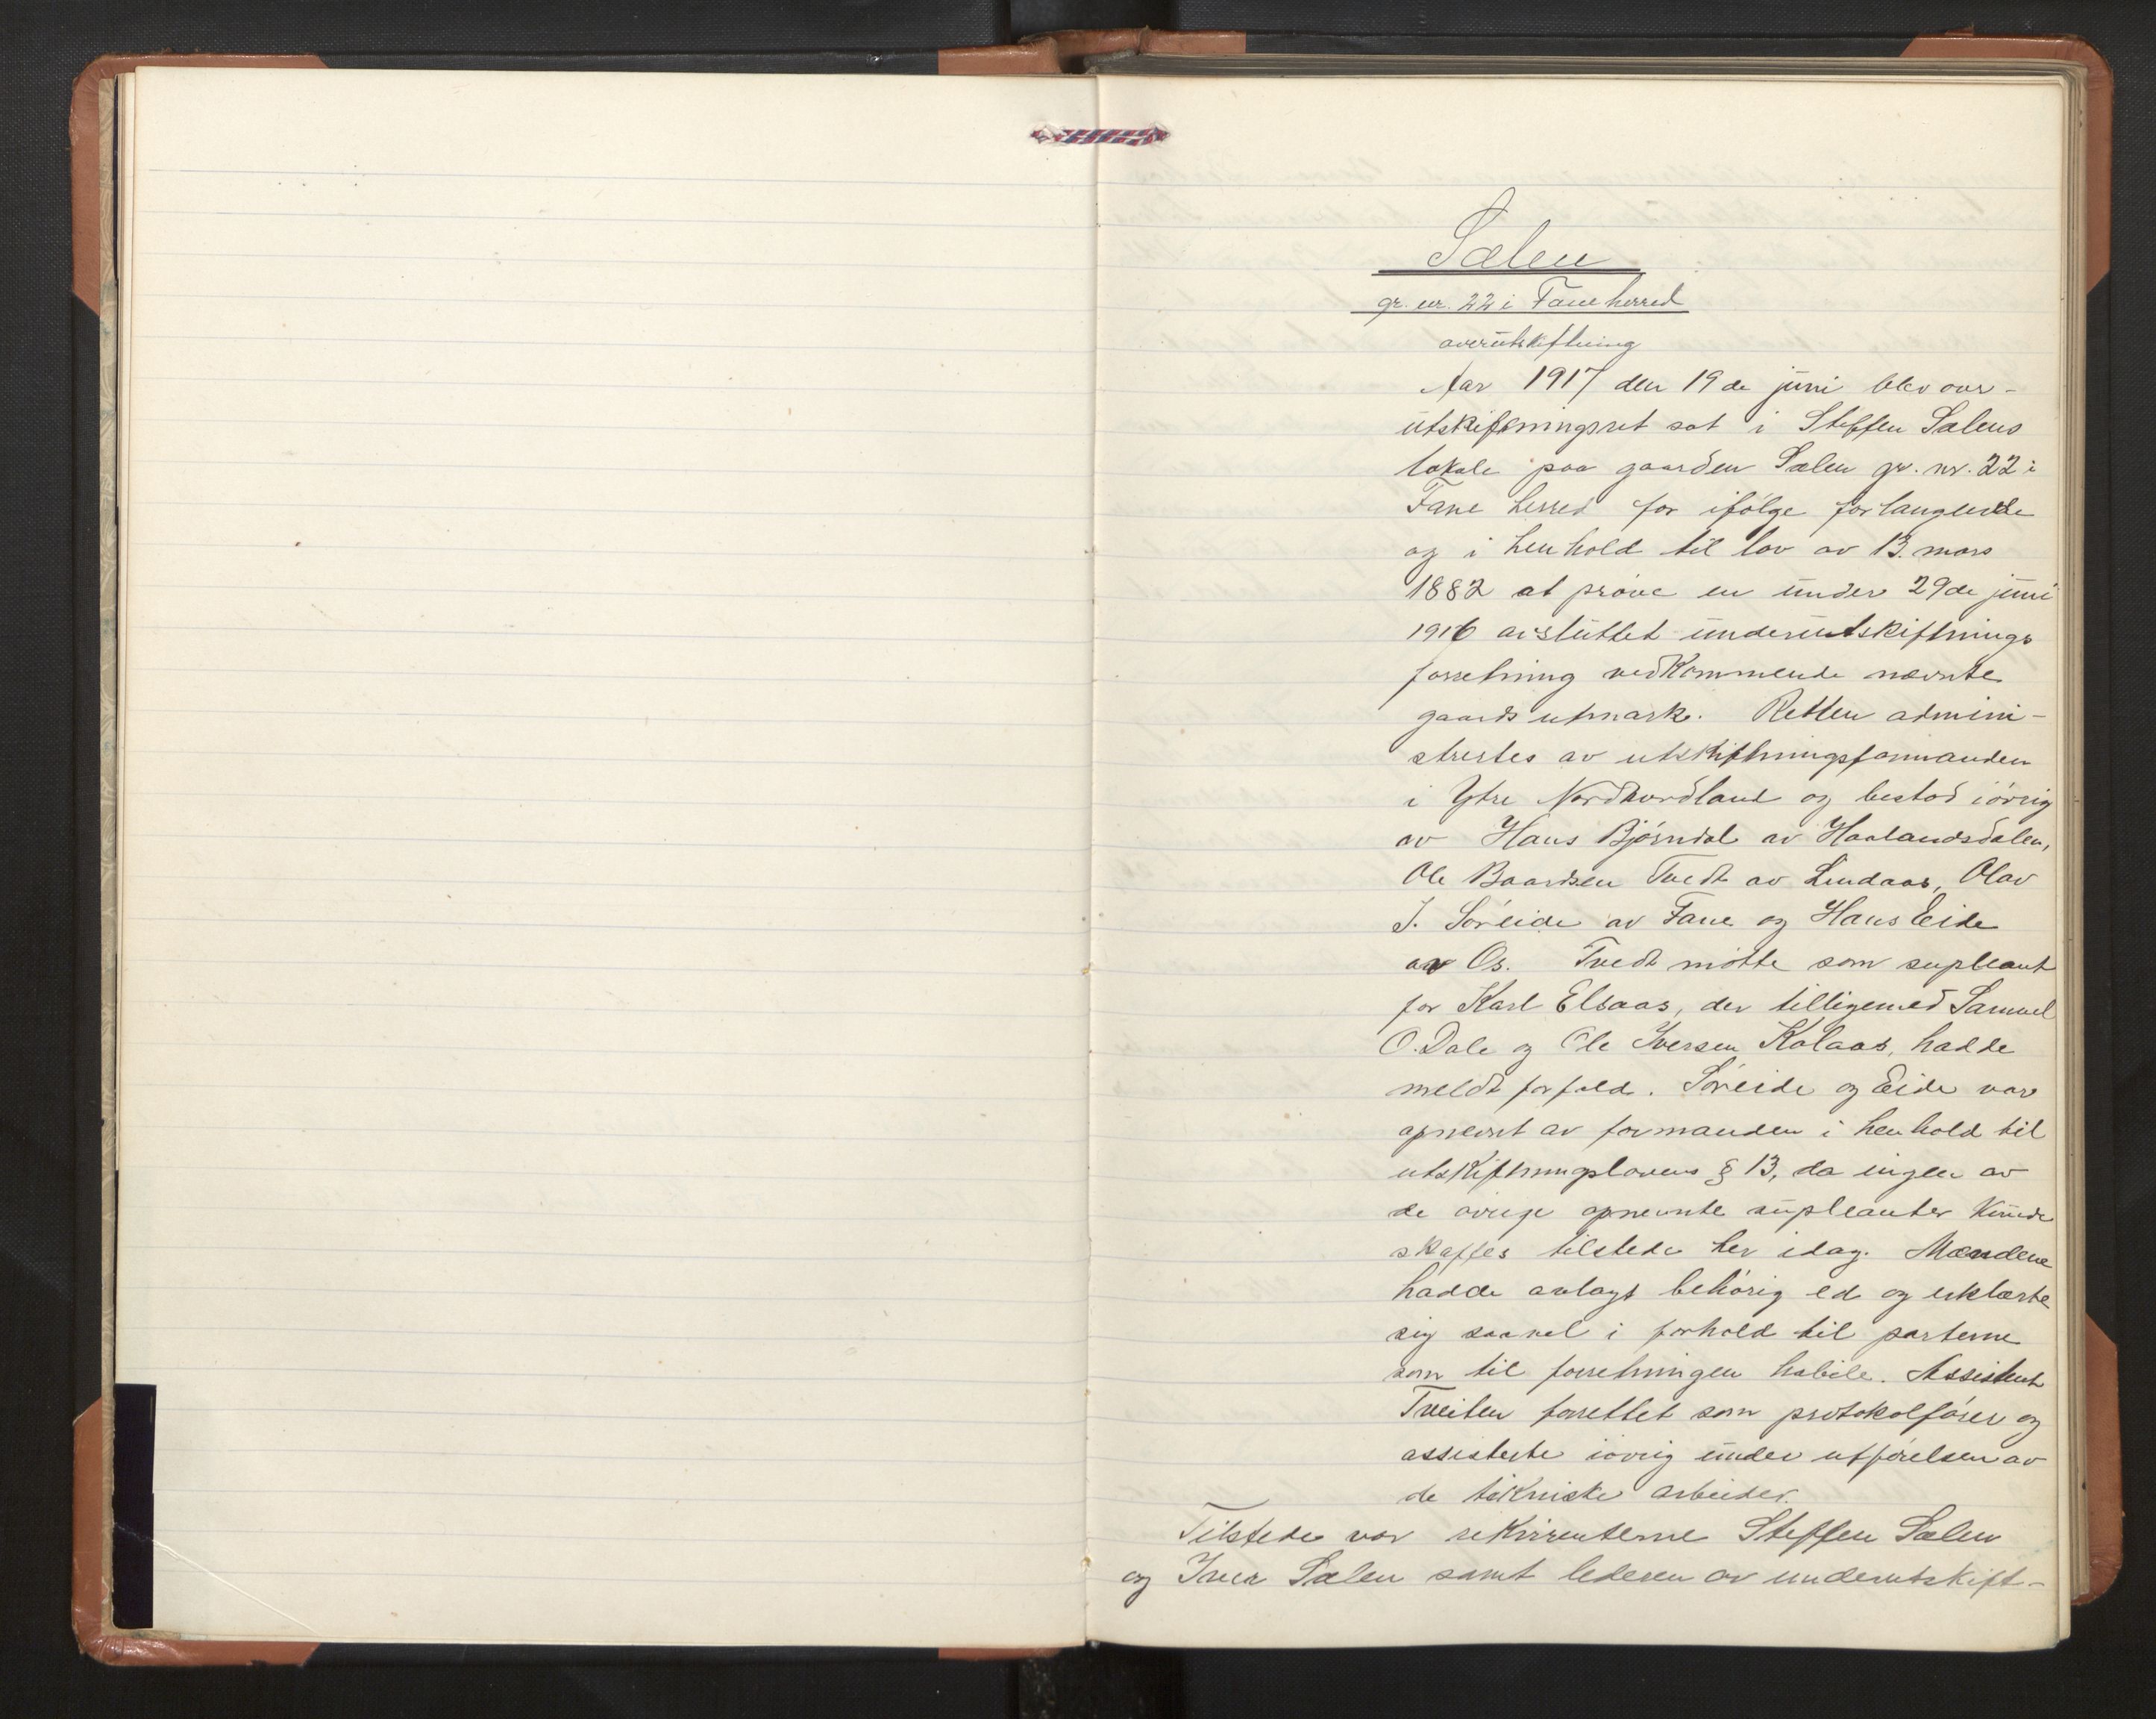 Sælen
gr. nr. 22 i Fane herred
overutskiftning
Aar 1917 den 19de juni blev over-
utskiftningsret sat i Steffen Sælens
lokale paa gaarden Sælen gr. nr. 22 i
Fane herred for ifölge forlangende
og i henhold til lov av 13. mars
1882 at pröve en under 29de juni
1916 avsluttet underutskiftnings
forretning vedkommende nævnte
gaards utmark. Retten admini-
strertes av utskiftningsformanden
i Ytre Nordhordland og bestod iövrig
av Hans Björndal av Haalandsdalen,
Ole Baardsen Tvedt av Lindaas, Olav
J. Söreide av Fane og Hans Eide
av Os. Tvedt mötte som supleant
for Karl Elsaas, der tilligemed Samuel
O. Dale og Ole Iversen Kolaas, hadde
meldt forfald. Söreide og Eide var
opnevnt av formanden i henhold til
utskiftningslovens § 13, da ingen av
de övrige opnevnte supleanter kunde
skaffes tilstede her idag. Mændene
hadde avlagt behörig ed og erklærte
sig saavel i forhold til parterne
som til forretningen habile. Assistent
Tveiten forrettet som protokolförer og
assisterte iövrig under utförelsen av
de tekniske arbeider.
Tilstede var rekvirenterne Steffen Sælen
og Iver Sælen samt lederen av underutskift-